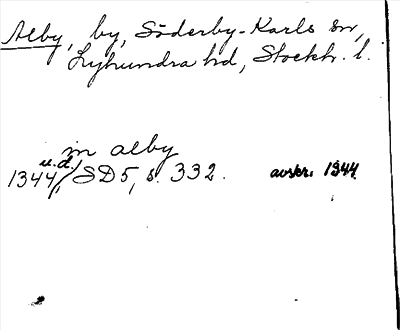 Alby, by, Söderby-Karls sn,
Lyhundra hd, Stockh. l.
in alby
u.d.
1344, SD5, s. 332. avskr. 1344